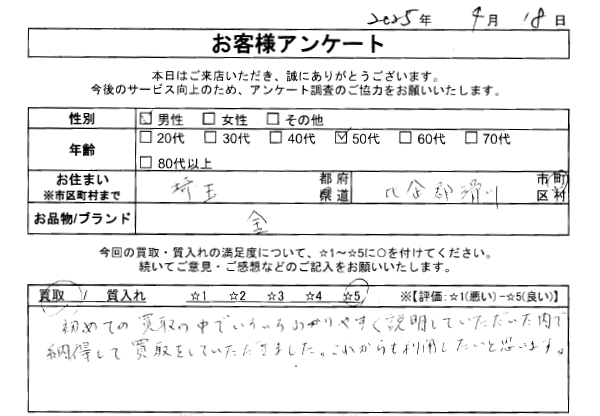 2025年 4月 18日
お客様アンケート
本日はご来店いただき、誠にありがとうございます。
今後のサービス向上のため、アンケート調査のご協力をお願いいたします。
性別 ☑男性 □女性 □その他
年齢 □20代 □30代 □40代 ☑50代 □60代 □70代
□80代以上
お住まい ※市区町村まで 埼玉 都府県道 比企郡滑川 市町区村
お品物/ブランド 金
今回の買取・質入れの満足度について、☆1～☆5に○を付けてください。
続いてご意見・ご感想などのご記入をお願いいたします。
買取 / 質入れ ☆1 ☆2 ☆3 ☆4 ☆5 ※【評価:☆1(悪い)－☆5(良い)】
初めての買取の中でいろいろわかりやすく説明していただいた内で
納得して買取をしていただきました。これからも利用したいと思います。